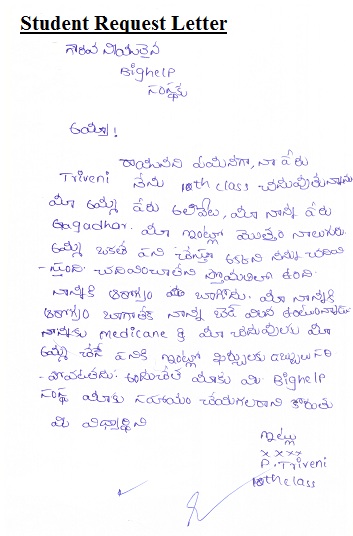 Student Request Letter
గౌరవ నీయులైన
BigHelp
సంస్థకు
అమ్మా!
రాయునది ఏమనగా, నా పేరు
Triveni నేను 10th class చదువుతున్నాను
మా అమ్మ పేరు అలివేలు, మా నాన్న పేరు
Gagadhar. మా ఇంట్లో మొత్తం నలుగురు.
అమ్మ ఒకతే పని చేస్తూ
చదివించలేని స్తోమతలో ఉంది.
నాన్నకి ఆరోగ్యం బాగోదు. మా నాన్నకి
ఆరోగ్యం బాగాలేక నాన్న బెడ్ మీద ఉంటున్నాడు
నాన్నకు Medicane & మా చదువులకు మా
అమ్మ చేసే పనికి ఇంట్లో ఖర్చులకు డబ్బులు సరి
- పోవటలేదు. అందుచేత మాకు మీ BigHelp
సంస్థ మాకు సహాయం చేయగలరాని కోరుతు
మీ విధ్యార్థిని
ఇట్లు
x x x x
P. Triveni
10th class